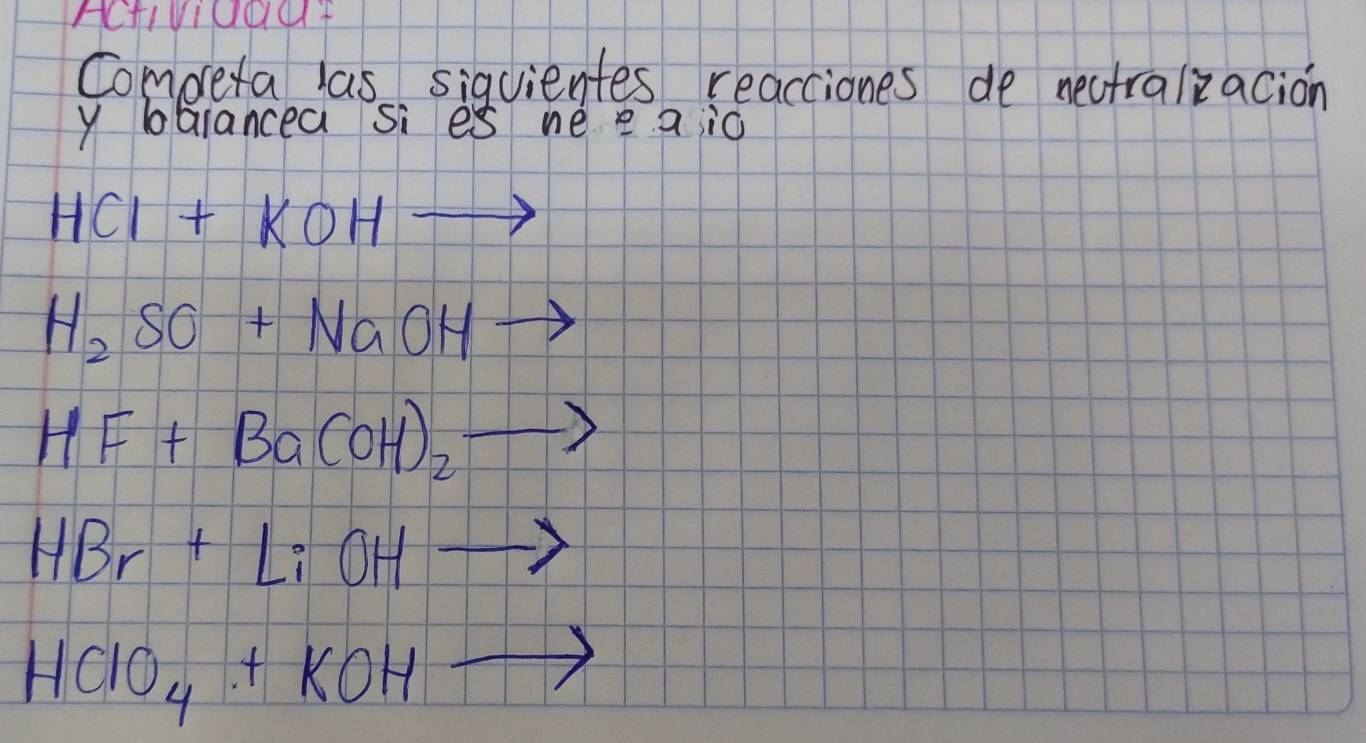 Actividad:
Completa las siguientes reacciones de neutralización
y balancea si es
HCl + KOH →
H₂ SO + NaOH →
HF + Ba(OH)₂ →
HBr + Li OH →
HClO₄ + KOH →